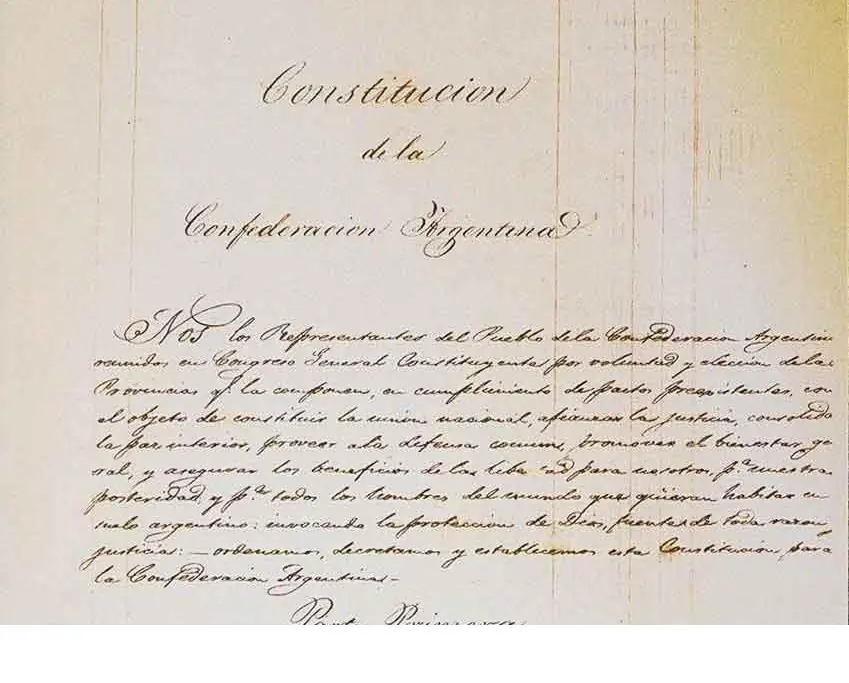 Constitucion
de la
Confederacion Argentina
Nos los Representantes del Pueblo de la Confederacion Argentin
reunidos en Congreso General Constituyente por voluntad y eleccion de las
Provincias q.e la componen, en cumplimiento de pactos preexistentes, con
el objeto de constituir la union nacional, afianzar la justicia, consolida
la paz interior, proveer a la defensa comun, promover el bienestar ge
ral, y asegurar los beneficios de la libe ad para nosotros, p.a nuestra
posteridad y p.a todos los hombres del mundo que quieran habitar en
suelo argentino: invocando la proteccion de Dios, fuente de toda razon
justicia: — ordenamos, decretamos y establecemos esta Constitucion, para
la Confederacion Argentina.-
Parte Primera